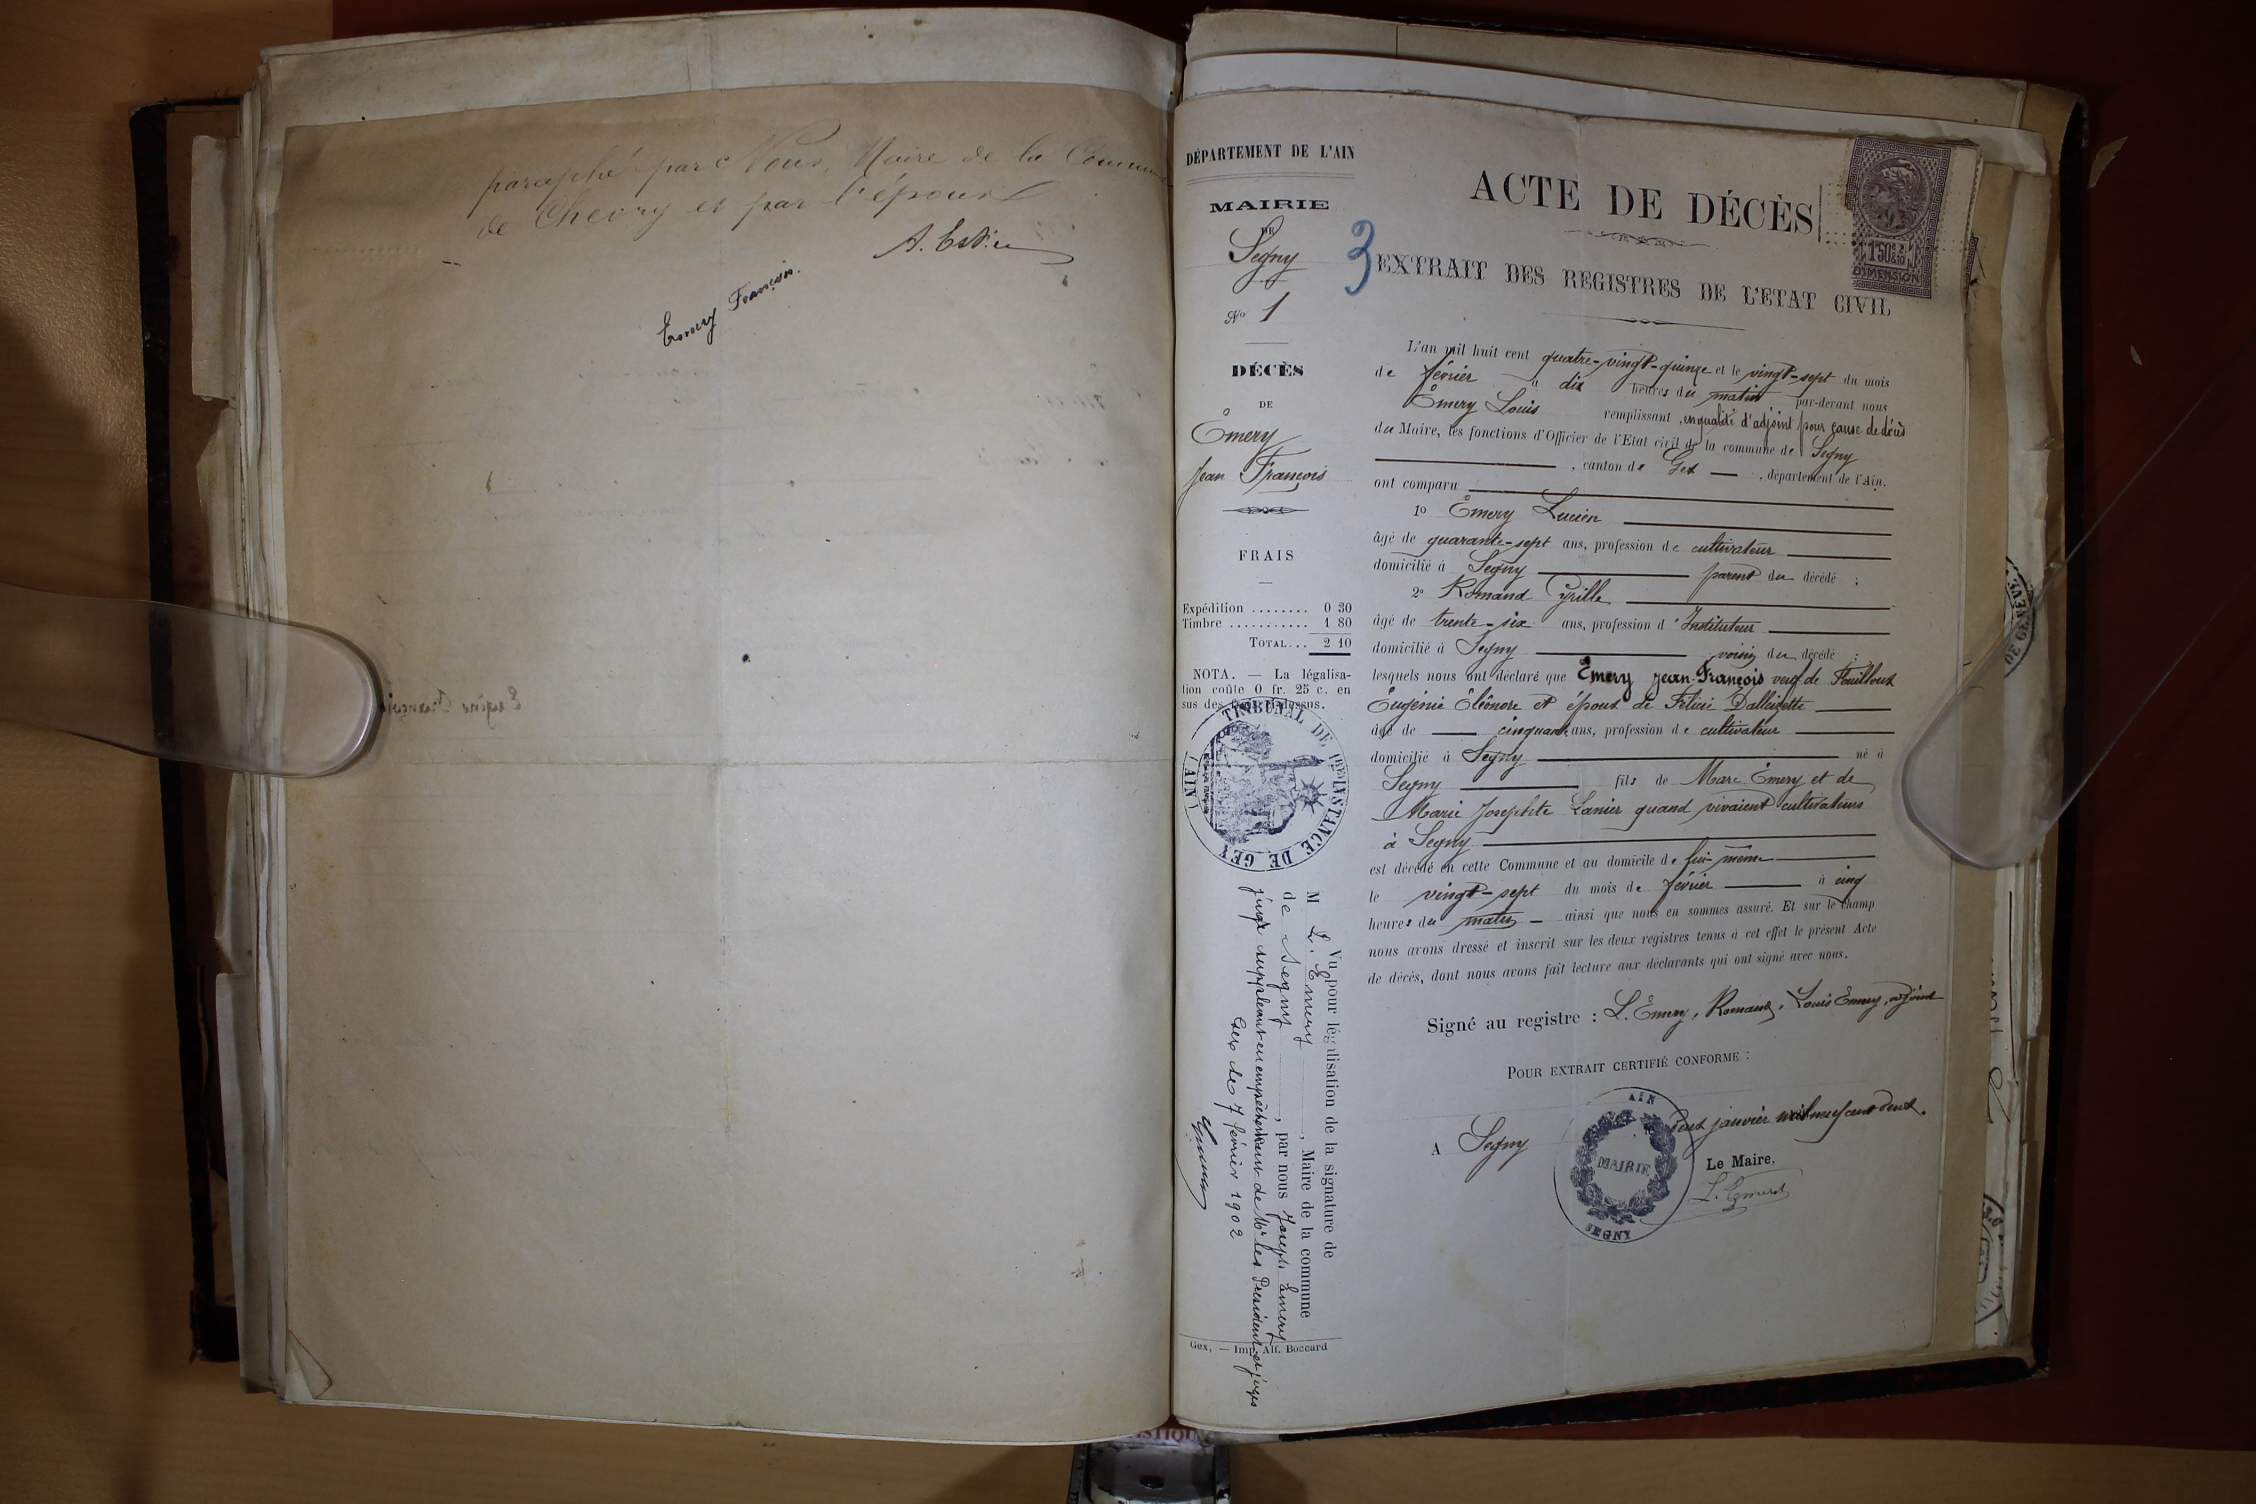 paraphé par Nous, Maire de la Commune
de Chevry et par l'époux
Emery François.
DÉPARTEMENT DE L'AIN
MAIRIE
DE
Segny
No 1
DÉCÈS
DE
Émery
Jean François
FRAIS
Expédition ........ 0 30
Timbre ........... 1 80
TOTAL... 2 10
NOTA. — La légalisa-
tion coûte 0 fr. 25 c. en
sus des frais ci-dessus.
TRIBUNAL DE 1RE INSTANCE DE GEX (AIN)
Vu pour légalisation de la signature de
M L. Emery, Maire de la commune
de Segny, par nous Joseph Emery
juge suppléant en empêchement de Mr les Président et juges
Gex le 7 février 1902
Gex. — Imp. Alf. Boccard
3
ACTE DE DÉCÈS
1F50c 2/10 EN SUS
DIMENSION
EXTRAIT DES REGISTRES DE L'ETAT CIVIL
L'an mil huit cent quatre-vingt-quinze et le vingt-sept du mois
de février à dix heures du matin par-devant nous
Émery Louis remplissant, en qualité d'adjoint pour cause de décès
du Maire, les fonctions d'Officier de l'Etat civil de la commune de Segny
, canton de Gex, département de l'Ain.
ont comparu
1o Émery Lucien
âgé de quarante-sept ans, profession de cultivateur
domicilié à Segny parent du décédé ;
2o Romand Cyrille
âgé de trente-six ans, profession d'Instituteur
domicilié à Segny voisin du décédé ;
lesquels nous ont déclaré que Émery Jean-François veuf de Fouilloux
Eugénie Éléonore et époux de Félicie Dalleizette
âgé de cinquante ans, profession de cultivateur
domicilié à Segny né à
Segny fils de Marc Émery et de
Marie Josephte Lanier quand vivaient cultivateurs
à Segny
est décédé en cette Commune et au domicile de lui-même
le vingt-sept du mois de février à cinq
heures du matin ainsi que nous en sommes assuré. Et sur le champ
nous avons dressé et inscrit sur les deux registres tenus à cet effet le présent Acte
de décès, dont nous avons fait lecture aux déclarants qui ont signé avec nous.
Signé au registre : L. Émery, Romand, Louis Émery, adjoint
POUR EXTRAIT CERTIFIÉ CONFORME :
A Segny le deux janvier mil neuf cent deux.
AIN
MAIRIE
SEGNY
Le Maire,
L. Emery